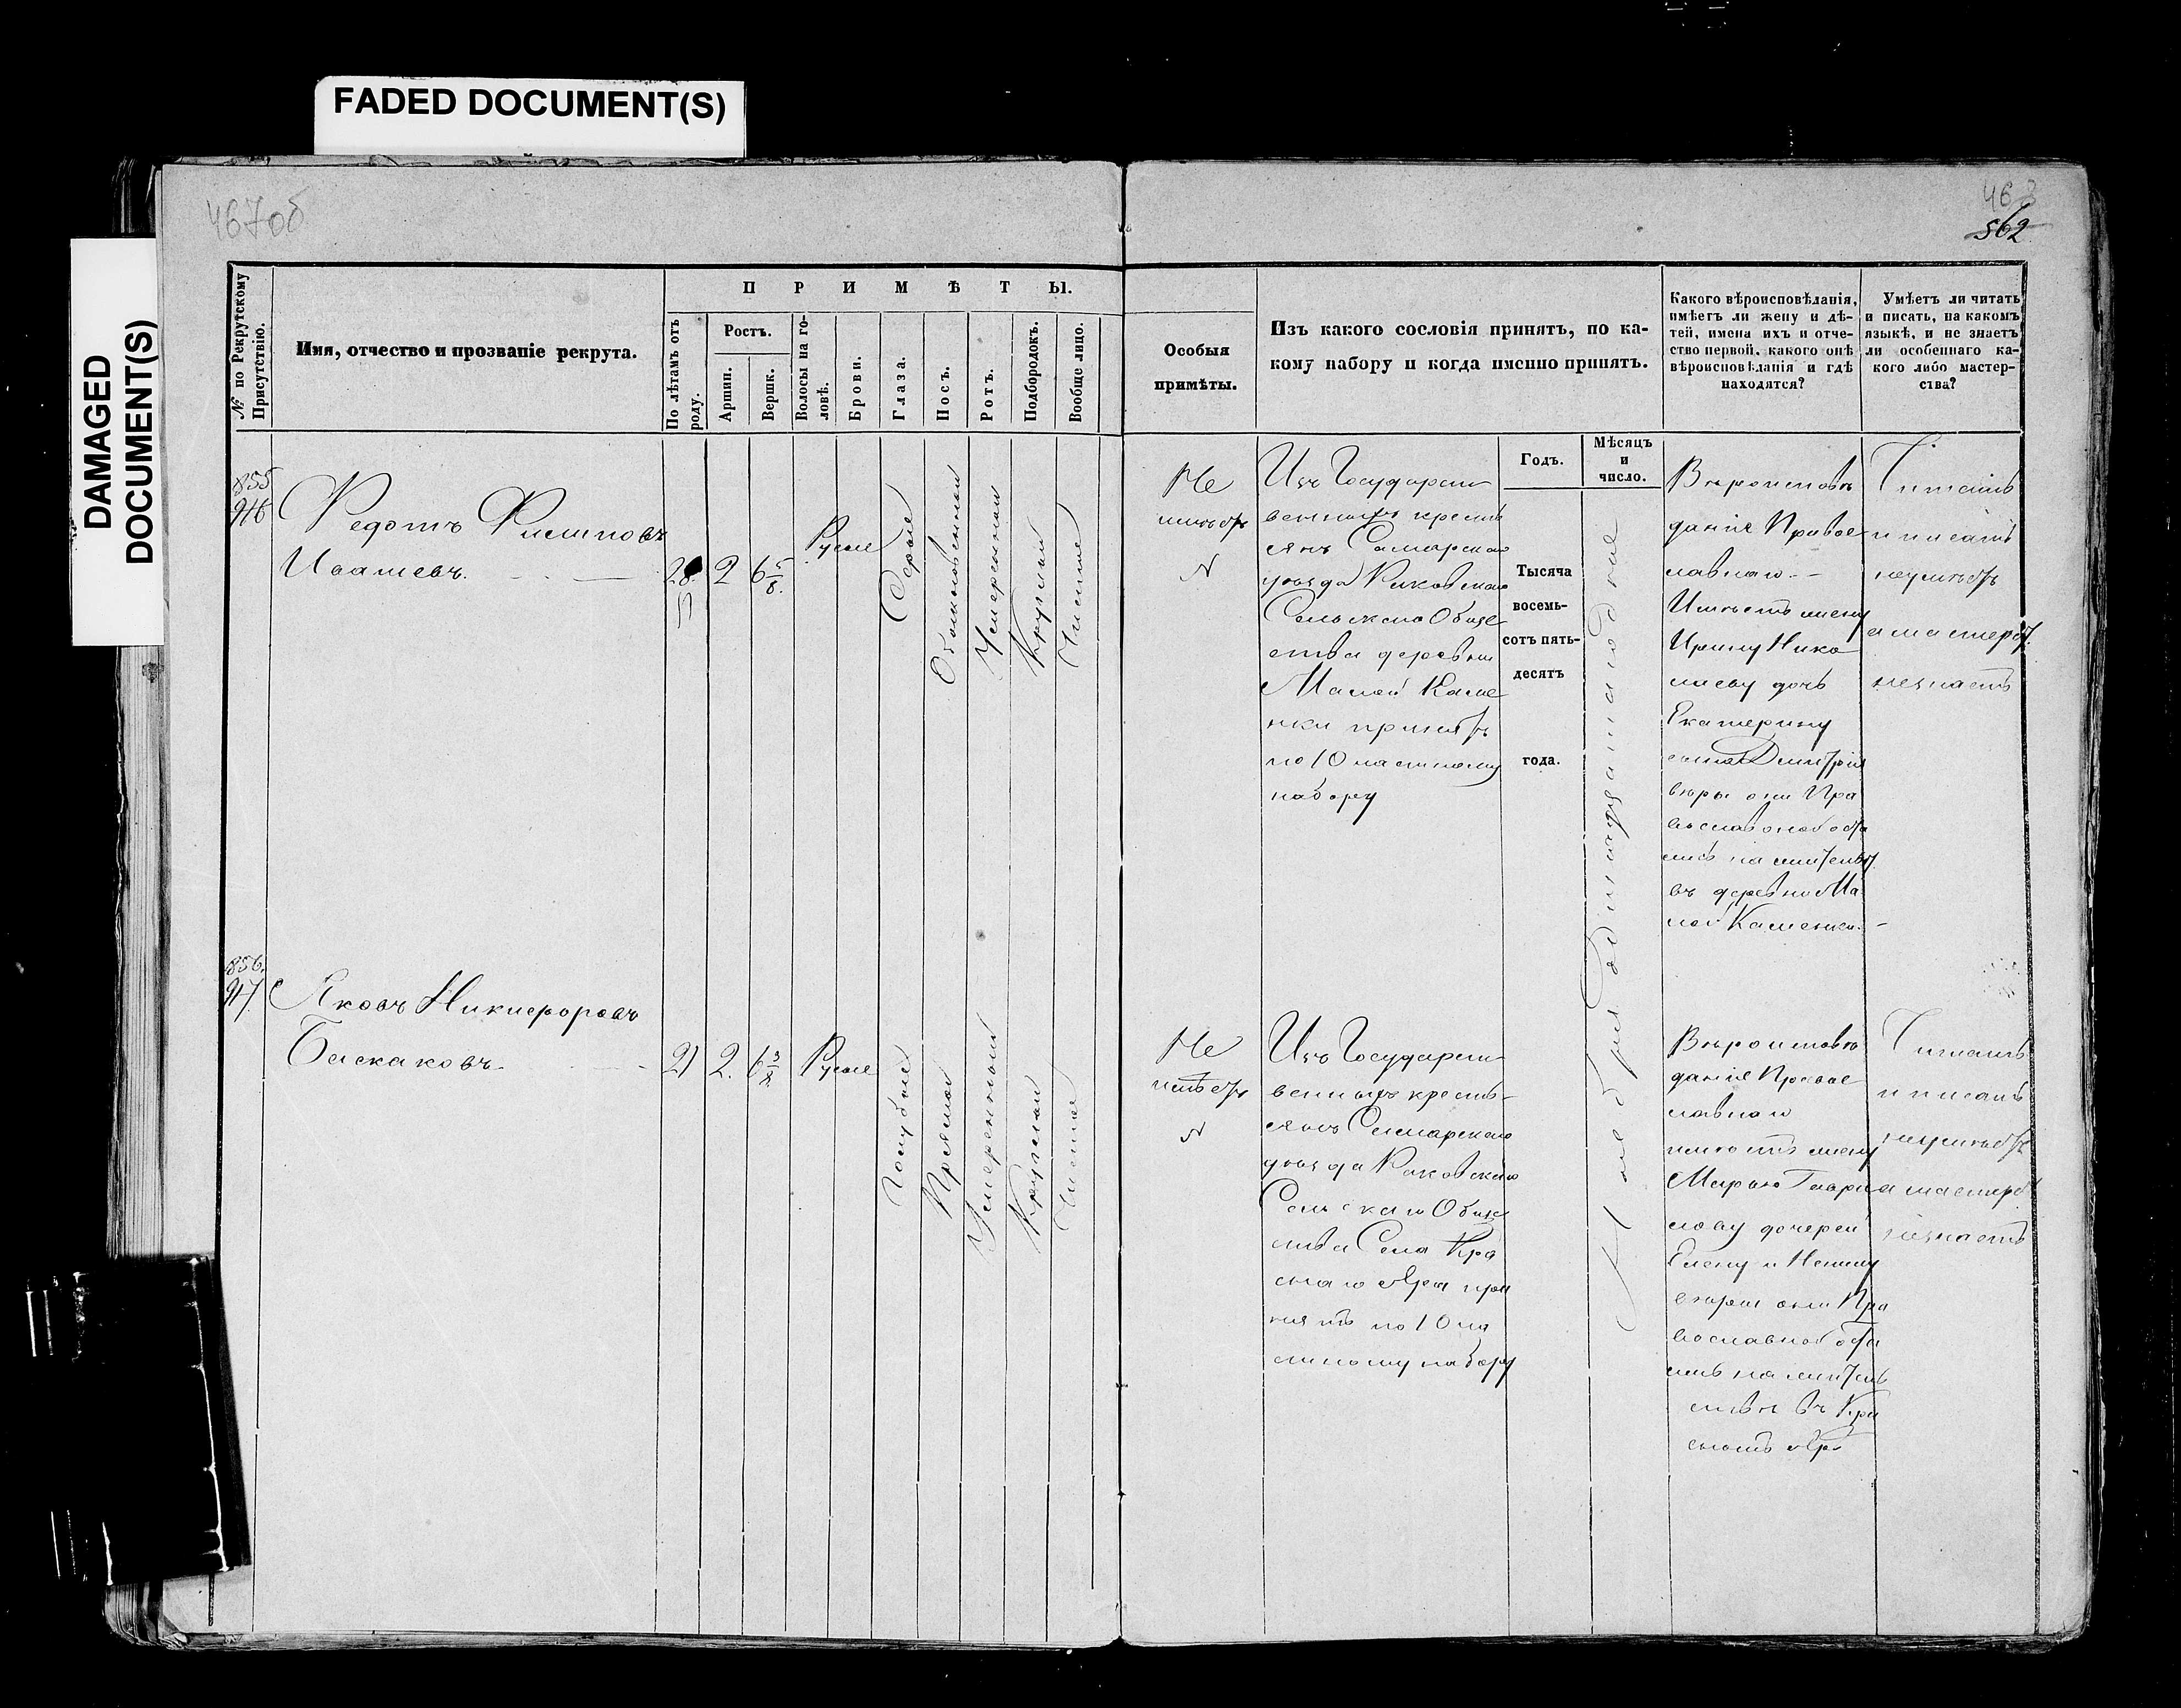 FADED DOCUMENT(S)
DAMAGED
DOCUMENT(S)
467об
463
562
№ по Рекрутскому
Присутствію.
Имя, отчество и прозваніе рекрута.
ПРИМѢТЫ.
По лѣтамъ отъ
роду.
Ростъ.
Аршин.
Вершк.
Волосы на го-
ловѣ.
Брови.
Глаза.
Носъ.
Ротъ.
Подбородокъ.
Вообще лицо.
Особыя
примѣты.
Изъ какого сословія принятъ, по ка-
кому набору и когда именно принятъ.
Какого вѣроисповѣданія,
имѣетъ ли жену и дѣ-
тей, имена ихъ и отче-
ство первой, какого онѣ
вѣроисповѣданія и гдѣ
находятся?
Умѣетъ ли читать
и писать, на какомъ
языкѣ, и не знаетъ
ли особеннаго ка-
кого либо мастер-
ства?
Годъ.
Мѣсяцъ
и
число.
Тысяча
восемь-
сотъ пять-
десятъ
года.
Ноября одиннадцатаго дня
855
946
Федотъ Филиповъ
Ивашевъ.
2 6 5/8.
Русые
Серые
Обыкновенный
Умеренный
Круглый
Чистое
Не
имѣетъ
Изъ Государст
венныхъ кресть
янъ Самарскаго
уѣзда Раковскаго
Сельскаго Обще
ства деревни
Малой Каме
нки принятъ
по 10 частному
набору
Вѣроисповѣ
данія Правос
лавнаго.-
Имѣетъ жену
Ирину Нико
лаеву дочь
Екатерину
сына Дмитрія
вѣры они Пра
вославной оста
лись на жительст
въ деревнѣ Ма
лой Каменки.-
Читать
и писать
неумѣетъ
а мастерст.
незнаетъ
856.
947.
Яковъ Никифоровъ
Баскаковъ.
21 2. 6 3/8
Русые
Голубые
Прямой
Умеренный
Круглый
Чистое
Не
имѣетъ
Изъ Государст
венныхъ кресть-
янъ Самарскаго
уѣзда Раковскаго
Сельскаго Обще
ства Села Кра
снаго Яра при
нятъ по 10 ча
стному набору
Вѣроисповѣ
данія Правос
лавнаго
имѣетъ жену
Марью Гаври
лову дочерей
Елену и Ненилу
вѣры они Пра
вославной оста
лись на житель
ствѣ въ Кра
сномъ Яру
Читать
и писать
неумѣетъ
а мастерст
незнаетъ